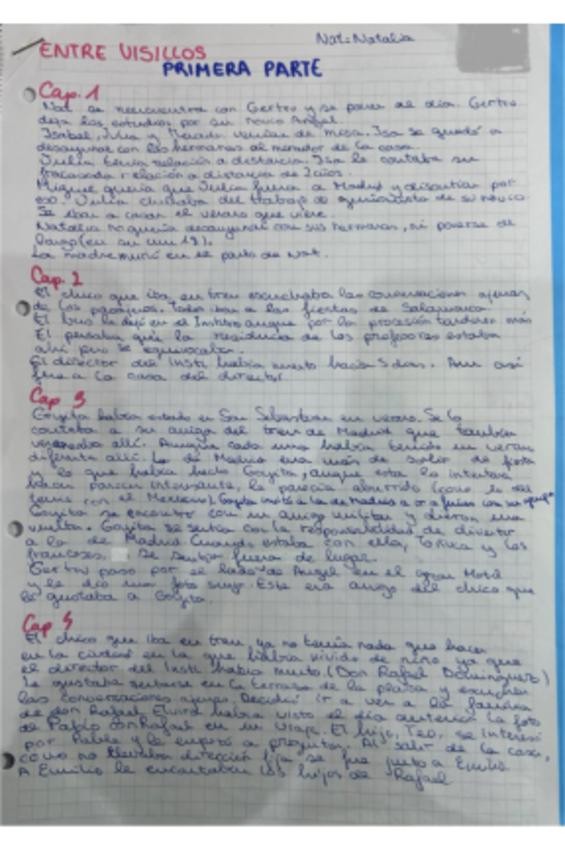 Nat: Natalia
ENTRE VISILLOS
PRIMERA PARTE
Cap. 1
Nat se reencuentra con Gertru y se ponen al día. Gertru
deja los estudios por su novio Angel.
Isabel, Julia y Mercedes venían de misa. Isa se quedó a
desayunar con las hermanas al mirador de la casa.
Julia tenía relación a distancia. Isa le contaba su
fracasada relación a distancia de 2 años.
Miguel quería que Julia fuera a Madrid y discutían por
eso. Julia hablaba del trabajo de de su novio.
Se iban a casar el verano que viene.
Natalia no quería desayunar con sus hermanas, ni ponerse de
largo (en su cum 19).
La madre murió en el parto de Nat.
Cap. 2
El chico que iba en tren escuchaba las conversaciones ajenas
de los pasajeros. Todos iban a las fiestas de Salamanca.
El bus le dejó en el Instituto aunque por la procesión tardaron más
El pensaba que la residencia de los profesores estaba
ahí pero se equivocaba.
El director del Insti había muerto hacía 5 días. Aun así
fue a la casa del director.
Cap 3
Goyita había estado en San Sebastian en verano. Se lo
contaba a su amiga del tren de Madrid que también
allí. Aunque cada una había tenido un verano
diferente allí. La de Madrid era más de salir de fiesta
y lo que había hecho Goyita, aunque esta lo intentara
hacer parecer interesante, le parecía aburrido (como lo del
con el Mexicano). Goyita invitó a la de Madrid a ir a fiestas con su
Goyita se encontro con un amigo militar y dieron una
vuelta. Goyita se sentía con la responsabilidad de divertir
a la de Madrid. Cuando estaba con ella, Toñuca y los
franceses. Se sentía fuera de lugar.
Gertru paso por el lado de Angel en el gran Hotel
y le dio una foto suya. Este era amigo del chico que
le gustaba a Goyita.
Cap 4
El chico que iba en tren, ya no tenía nada que hacer
en la ciudad en la que había vivido de niño ya que
el director del Insti había muerto. (Don Rafael Dominguez)
Le gustaba sentarse en la terraza de la plaza y escuchar
las conversaciones ajenas. Decidió ir a ver a la familia
de don Rafael. Elvira había visto el día anterior la foto
de Pablo con Rafael en un viaje. El hijo, Teo, se interesó
por Pablo y le empezó a preguntar. Al salir de la casa,
como no llevaba dirección fija se fue junto a Emilio
A Emilio le encantaban los hijos de Rafael